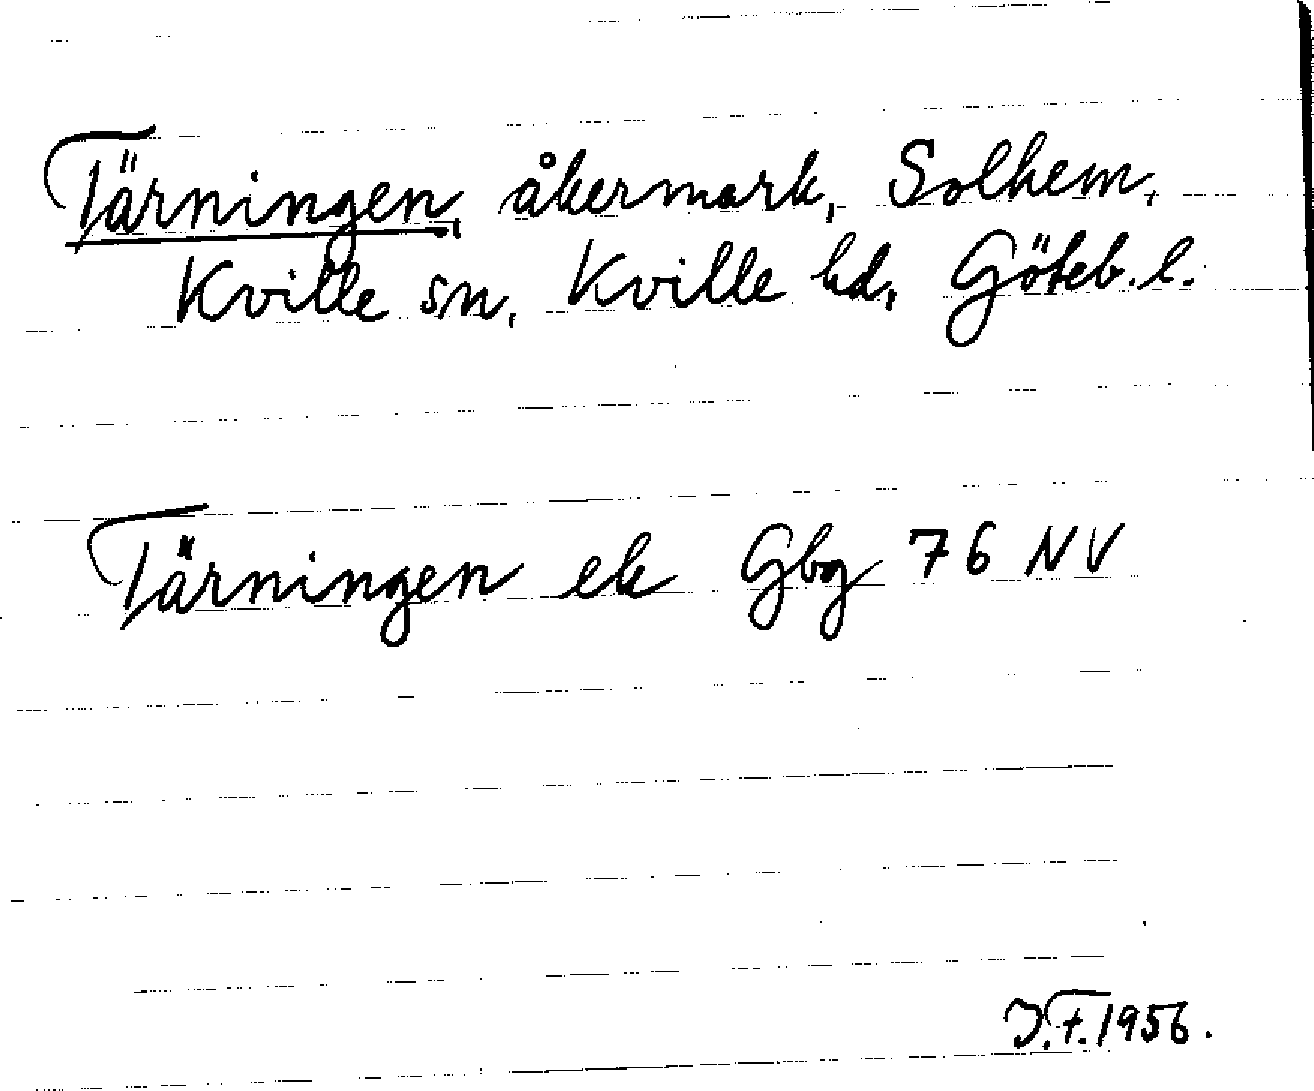 Tärningen, åkermark, Solhem,
Kville sn, Kville hd, Göteb. l.
Tärningen ek Gbg 76 NV
J.F. 1956.